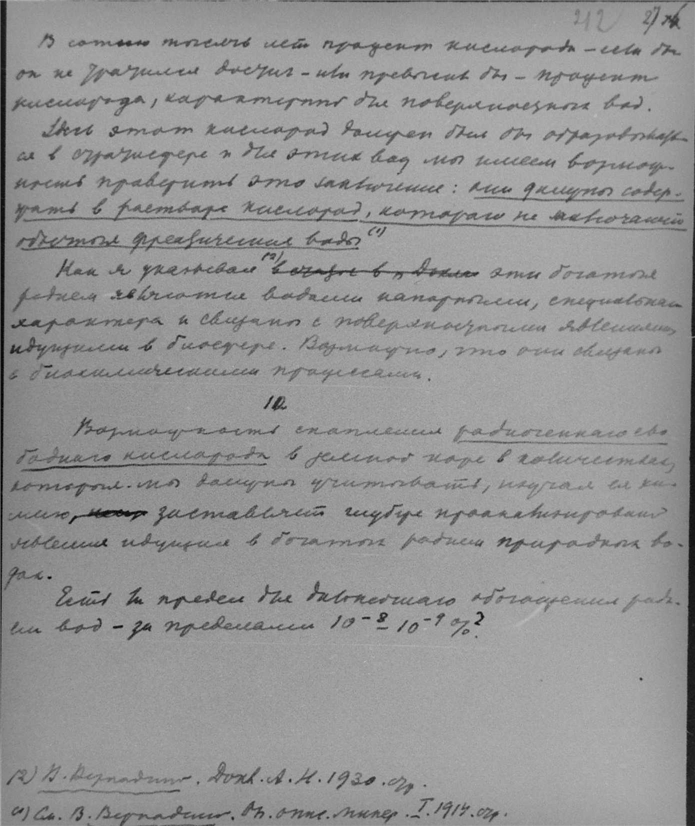 212 27
В сотню тысяч лет процент кислорода – если бы
он не тратился достиг – или превысил бы – процент
кислорода, характерный для поверхностных вод.
Здесь этот кислород должен был бы образовывать-
ся в стратисфере и для этих вод мы имеем возмож-
ность проверить это заключение: они должны содер-
жать в растворе кислород, которого не заключают
обычные фреатические воды (1)
Как я указывал (2) эти богатые
радием являются водами напорными, специального
характера и связаны с поверхностными явлениями
идущими в биосфере. Возможно, что они связаны
с биохимическими процессами.
12
Возможность скопления радиогенного сво
бодного кислорода в земной коре в количествах,
которые мы должны учитывать, изучая ея хи-
мию, заставляет глубже проанализировать
явления идущия в богатых радием природных во-
дах.
Есть ли предел для дальнейшаго обогащения ради-
ем вод – за пределами 10⁻⁸ 10⁻⁹ %?
(2) В. Вернадский. Докл. А. Н. 1930. стр.
(1) См. В. Вернадский. Оп. опис. минер. I. 1914. стр.